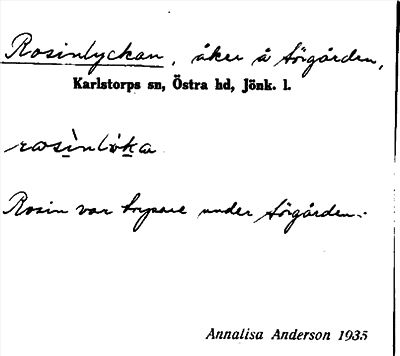 Rosinlyckan, åker å Sörgården,
Karlstorps sn, Östra hd, Jönk. l.
Rosin var brypare under Sörgården.
Annalisa Anderson 1935